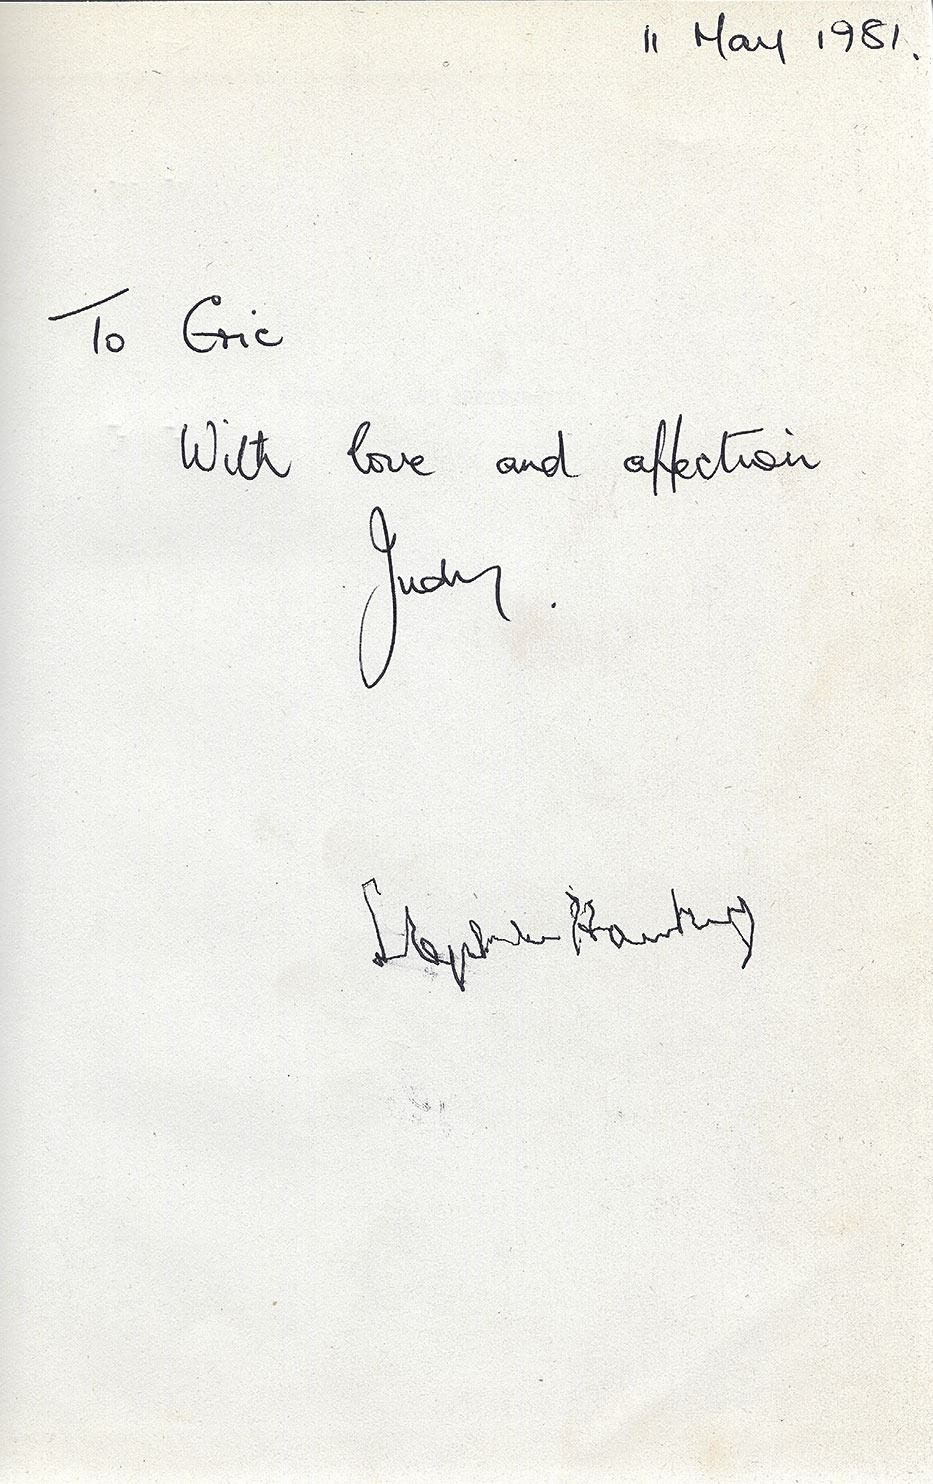 11 May 1981.
To Eric
With love and affection
Judy.
Stephen Hawking